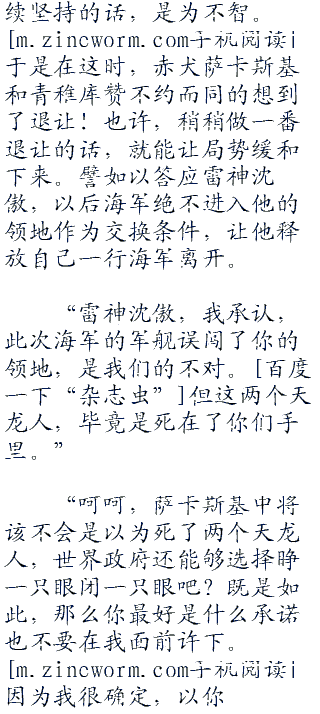 续坚持的话，是为不智。
[m.zincworm.com手机阅读i
于是在这时，赤犬萨卡斯基
和青稚库赞不约而同的想到
了退让！也许，稍稍做一番
退让的话，就能让局势缓和
下来。譬如以答应雷神沈
傲，以后海军绝不进入他的
领地作为交换条件，让他释
放自己一行海军离开。
“雷神沈傲，我承认，
此次海军的军舰误闯了你的
领地，是我们的不对。[百度
一下“杂志虫”]但这两个天
龙人，毕竟是死在了你们手
里。”
“呵呵，萨卡斯基中将
该不会是以为死了两个天龙
人，世界政府还能够选择睁
一只眼闭一只眼吧？既是如
此，那么你最好是什么承诺
也不要在我面前许下。
[m.zincworm.com手机阅读i
因为我很确定，以你